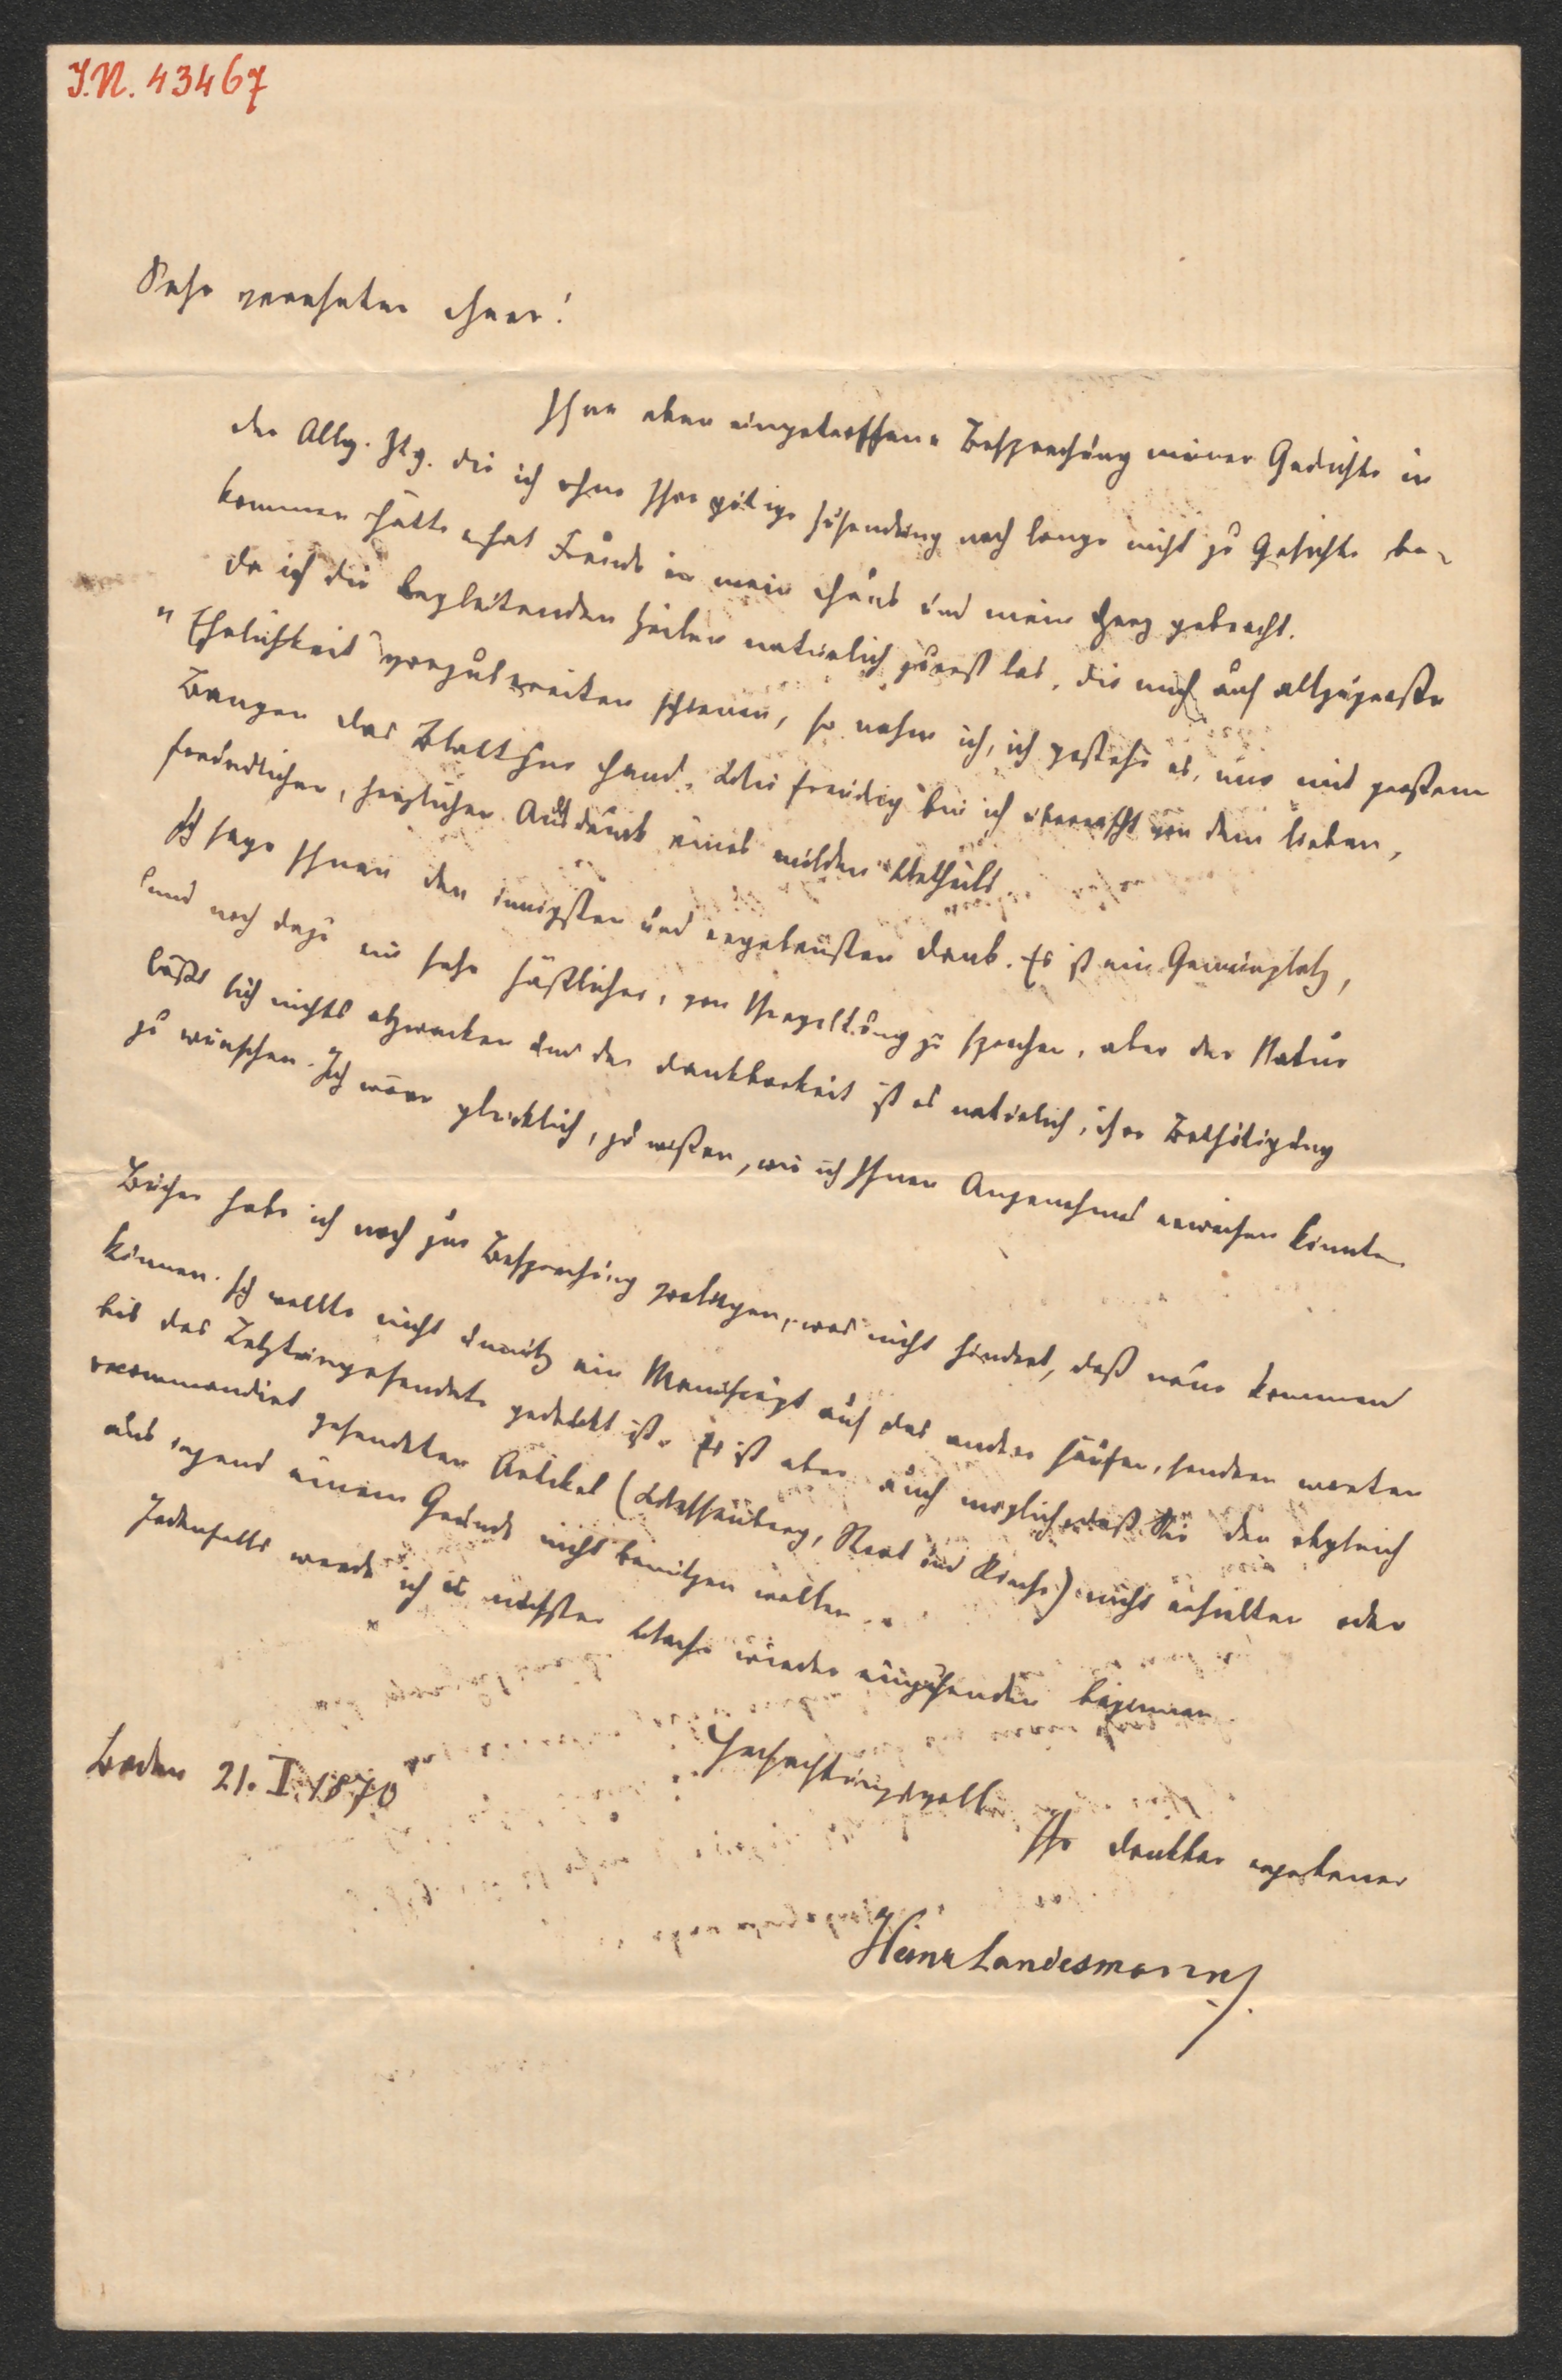 I.N. 43467
Sehr verehrter Herr!
Ihre eben eingetroffene Besprechung meiner Gedichte in
der Allg. Ztg. die ich ohne Ihre gütige Zusendung noch lange nicht zu Gesichte be-
kommen hätte hat Freude in mein Haus und mein Herz gebracht.
da ich die begleitenden Zeilen natürlich zuerst las, die mich auf allzugroße
"Ehrlichkeit" vorzubereiten schienen, so nahm ich, ich gestehe es, nur mit großem
Bangen das Blatt zur Hand. Wie freudig bin ich überrascht von dem lieben,
freundlichen, herzlichen Ausdruck eines milden Urtheils.
Ich sage Ihnen den innigsten und ergebensten Dank. Es ist ein Gemeinplatz,
und noch dazu ein sehr häßlicher, von Vergeltung zu sprechen, aber der Natur
läßt sich nichts abzwacken und der Dankbarkeit ist es natürlich, ihre Bethätigung
zu wünschen. Ich wäre glücklich, zu wissen, wie ich Ihnen Angenehmes erweisen könnte.
Bücher habe ich noch zur Besprechung vorliegen, was nicht hindert, daß neue kommen
können. Ich wollte nicht unnütz ein Manuscript auf das andere häufen, sondern warten
bis das Letzteingesendete gedruckt ist. Es ist aber auch möglich, daß Sie den obgleich
recommandirt gesendeten Artikel ( Staat und Kirche) nicht erhielten oder
aus irgend einem Grunde nicht benützen wollen.
Jedenfalls werde ich nächster Woche wieder einzusenden beginnen.
Hochachtungsvoll
Baden 21. I. 1870
Ihr dankbar ergebener
Heinr Landesmann